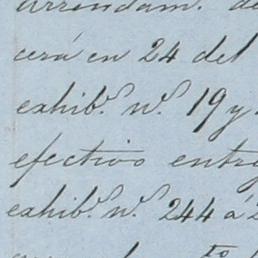 arrendam.º de
cerá en 24 del
exhib.º n.º 19 y
efectivo entre
exhib.º n.º 244 á 2